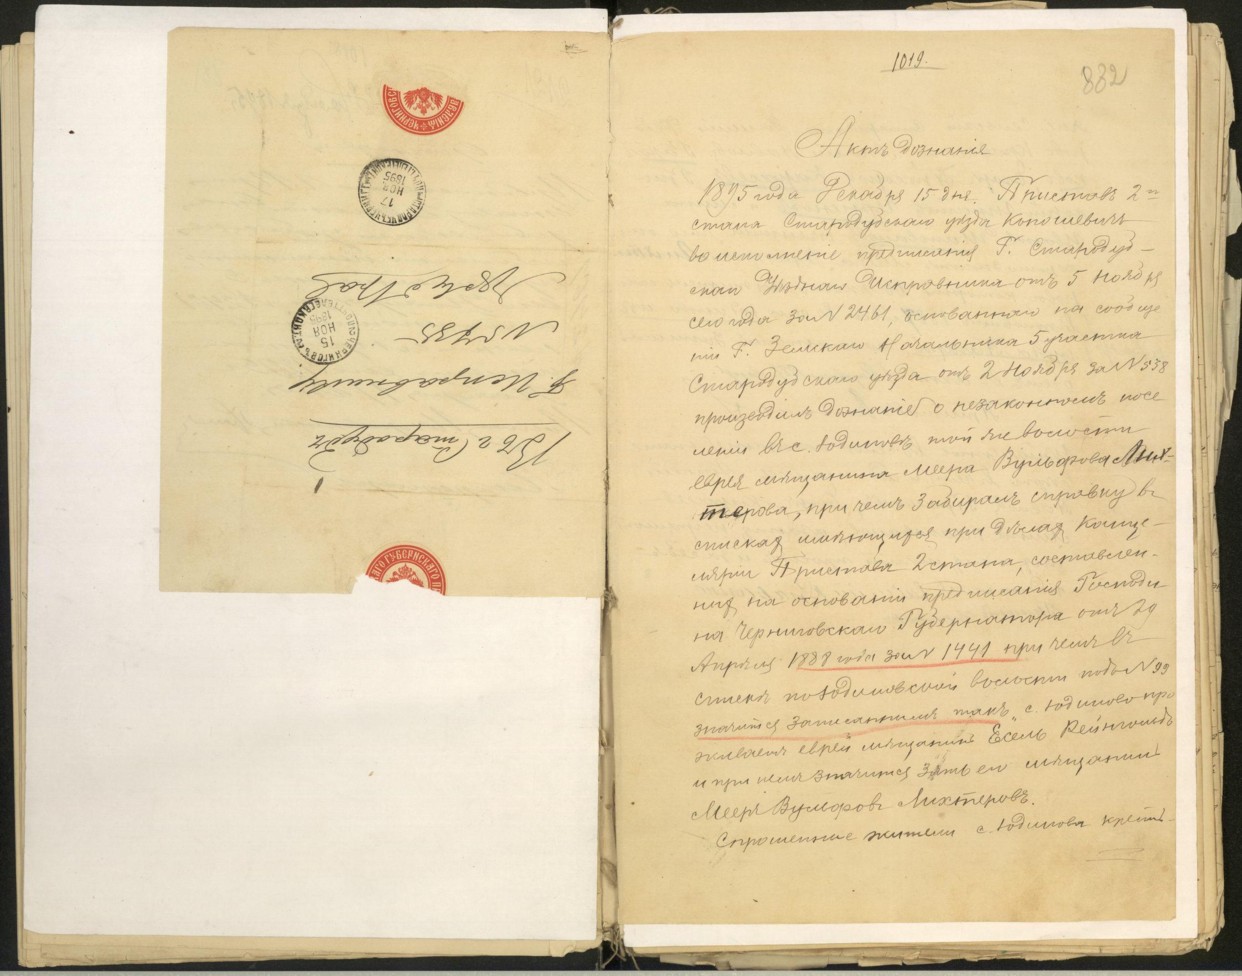 ЧЕРНИГОВС
17
НОЯ
1895
Нужное
№ 5735
15
НОЯ
1895
Г. Исправнику
Въ г. Стародубъ
АГО ГУБЕРНСКАГО П
1019.
832
Актъ дознанія
1895 года Декабря 15 дня. Приставъ 2го
стана Стародубскаго уѣзда
во исполненіе предписанія Г. Стародуб-
скаго Уѣзднаго Исправника отъ 5 Ноября
сего года за № 2461, основаннаго на сообще
ніи Г. Земскаго Начальника 5 участка
Стародубскаго уѣзда отъ 2 Ноября за № 538
производилъ дознаніе о незаконномъ посе
леніи въ с. Юдиновѣ той же волости
еврея мѣщанина Меера Вульфова Лих-
терова, при чемъ забиралъ справку въ
спискахъ имѣющихся при дѣлахъ Канце-
ляріи Пристава 2 стана, составлен-
ныхъ на основаніи предписанія Господи
на Черниговскаго Губернатора отъ 29
Апрѣля 1888 года за № 1441 при чемъ въ
спискѣ по Юдиновской волости подъ № 99
значится записаннымъ такъ „с. Юдиново про
живаетъ еврей мѣщанинъ Есель Рейнгольдъ
и при немъ значится зять его мѣщанинъ
Мееръ Вульфовъ Лихтеровъ.
Спрошенные жители с. Юдинова крестъ-